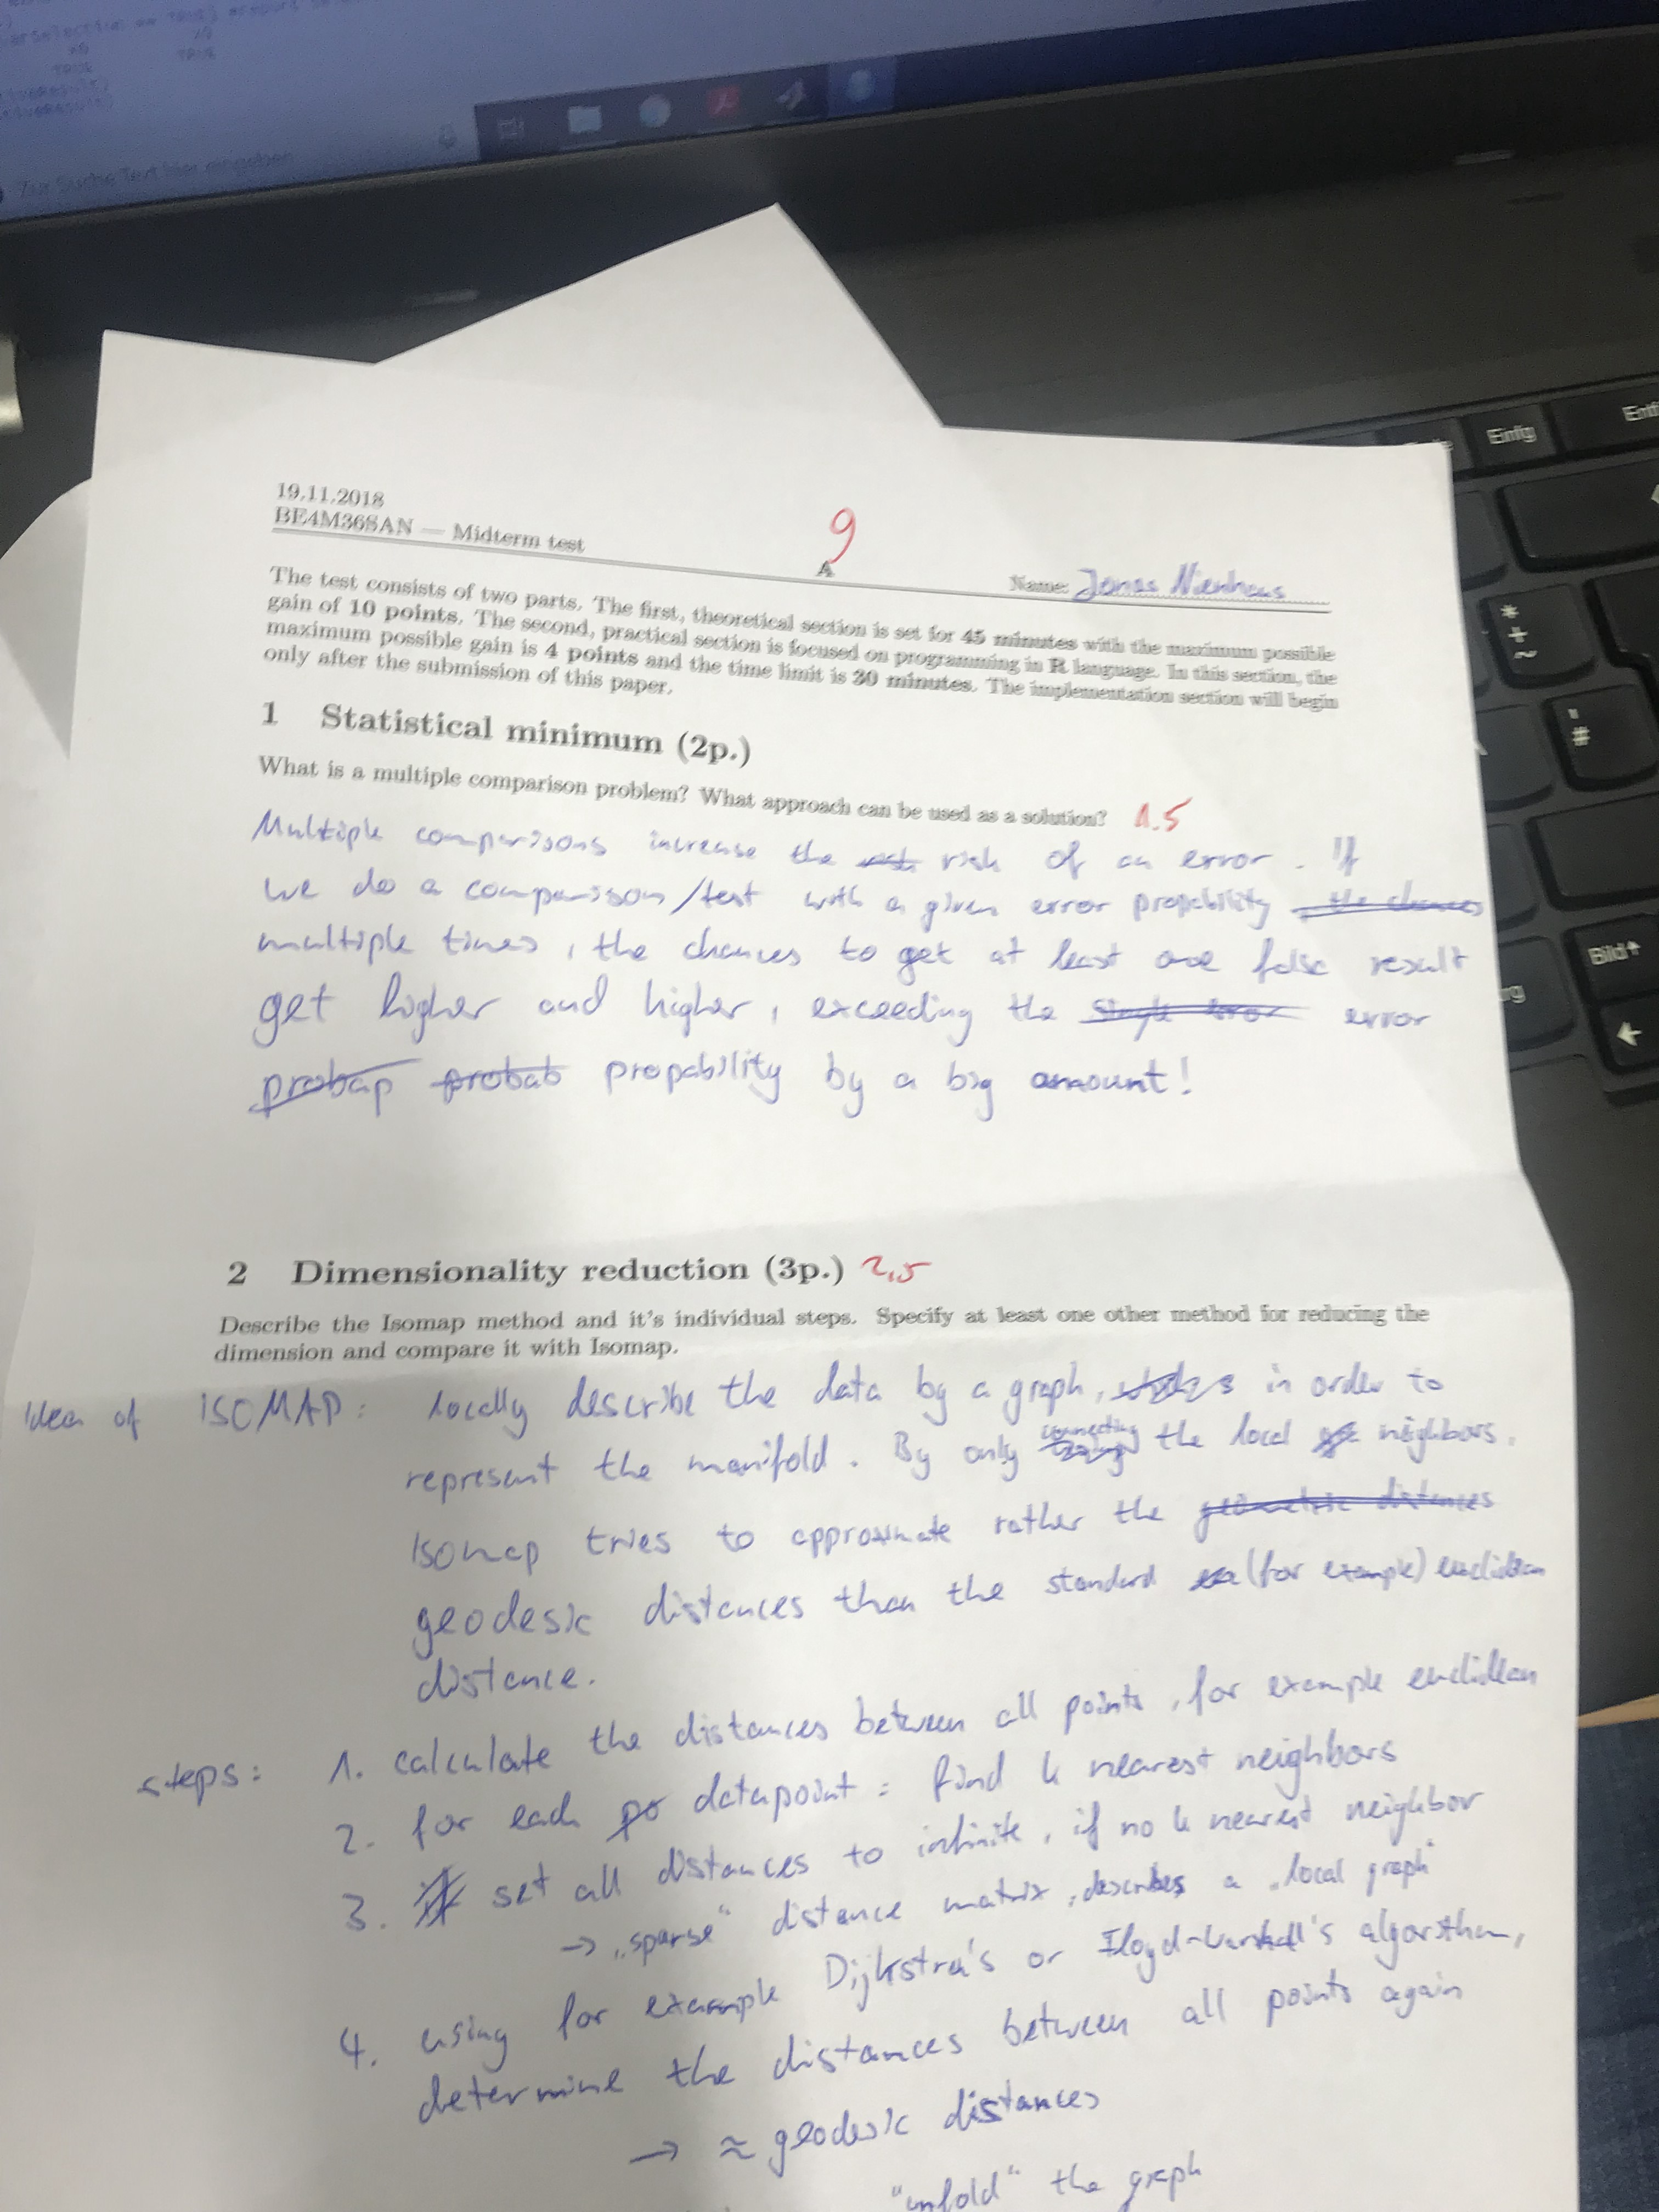 TRUE
TRUE
Zur Suche Text hier eingeben
Einfg
Entf
*
+
~
'
#
Bild↑
←
19.11.2018
BE4M36SAN — Midterm test
9
A
Name: Jonas Nienhaus
The test consists of two parts. The first, theoretical section is set for 45 minutes with the maximum possible
gain of 10 points. The second, practical section is focused on programming in R language. In this section, the
maximum possible gain is 4 points and the time limit is 30 minutes. The implementation section will begin
only after the submission of this paper.
1 Statistical minimum (2p.)
What is a multiple comparison problem? What approach can be used as a solution? 1.5
Multiple comparisons increase the risk of an error. If
we do a comparison/test with a given error propability the chances
multiple times, the chances to get at least one false result
get higher and higher, exceeding the single error error
probap probab propability by a big amount!
2 Dimensionality reduction (3p.) 2,5
Describe the Isomap method and it's individual steps. Specify at least one other method for reducing the
dimension and compare it with Isomap.
Idea of ISOMAP: locally describe the data by a graph, in order to
represent the manifold. By only connecting the local neighbors,
Isomap tries to approximate rather the geometric distances
geodesic distances than the standard (for example) euclidean
distance.
steps: 1. calculate the distances between all points, for example euclidean
2. for each po datapoint: find k nearest neighbors
3. if set all distances to infinite, if no k nearest neighbor
→ „sparse" distance matrix, describes a „local graph"
4. using for example Dijkstra's or Floyd-Warshall's algorithm,
determine the distances between all points again
→ ≈ geodesic distances
"unfold" the graph